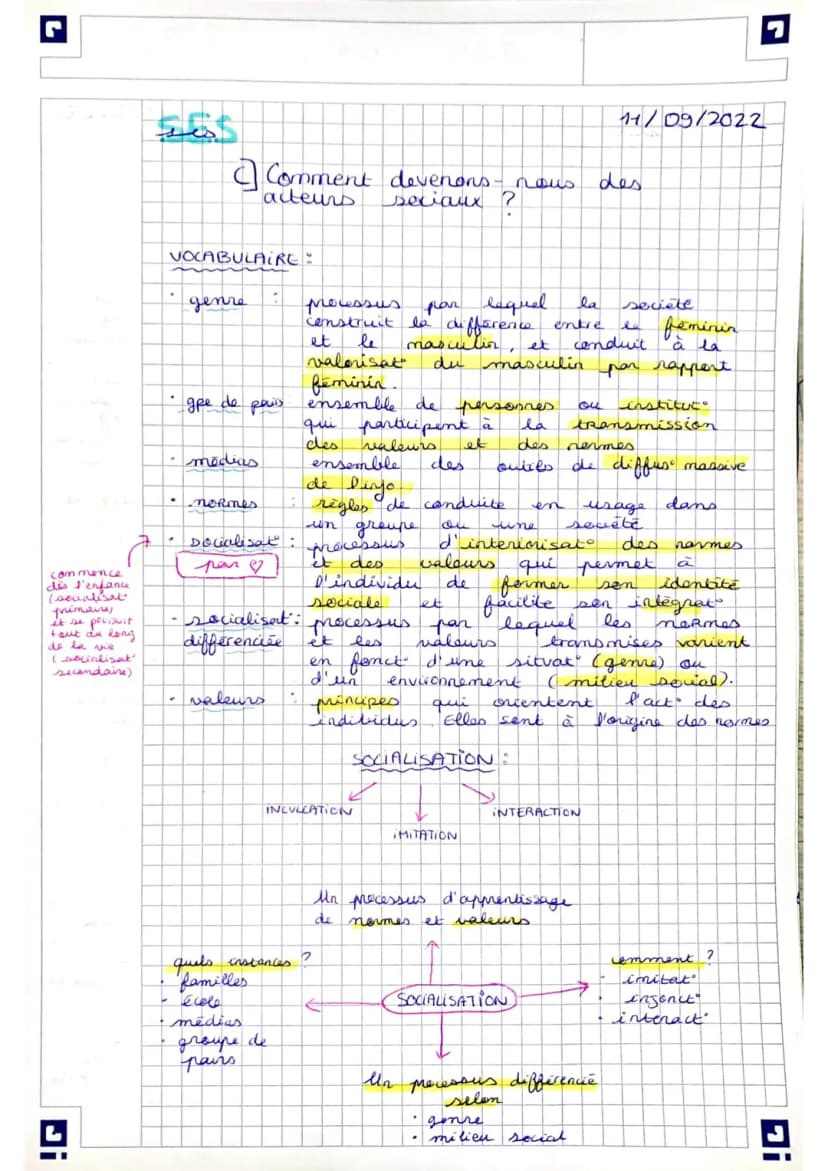 SES
11/09/2022
C] Comment devenons-nous des
acteurs sociaux ?
VOCABULAIRE :
· genre : processus par lequel la société
construit la différence entre le féminin
et le masculin, et conduit à la
valorisat° du masculin par rapport
féminin.
· gpe de pairs ensemble de personnes ou institut°
qui participent à la transmission
des valeurs et des normes
· médias ensemble des outils de diffus° massive
de l'info.
· normes : règles de conduite en usage dans
un groupe ou une société
· socialisat° : processus d'interiorisat° des normes
par ♡ et des valeurs qui permet à
l'individu de former son identité
sociale et facilite son intégrat°
commence
dès l'enfance
(socialisat°
primaire)
et se poursuit
tout au long
de la vie
(socialisat°
secondaire)
- socialisat° : processus par lequel les normes
différenciée et les valeurs transmises varient
en fonct° d'une situat° (genre) ou
d'un environnement (milieu social).
· valeurs : principes qui orientent l'act° des
individus. Elles sont à l'origine des normes
SOCIALISATION :
INCULCATION
IMITATION
INTERACTION
Un processus d'apprentissage
de normes et valeurs
quels instances ?
· familles
- école
· médias
· groupe de
pairs
SOCIALISATION
comment ?
- imitat°
· injonct°
· interact°
Un processus différencié
selon
· genre
· milieu social